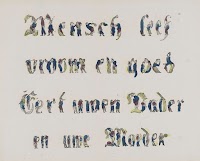 Mensch leef
vroom en goed
Eert uwen Vader
en uwe Moeder